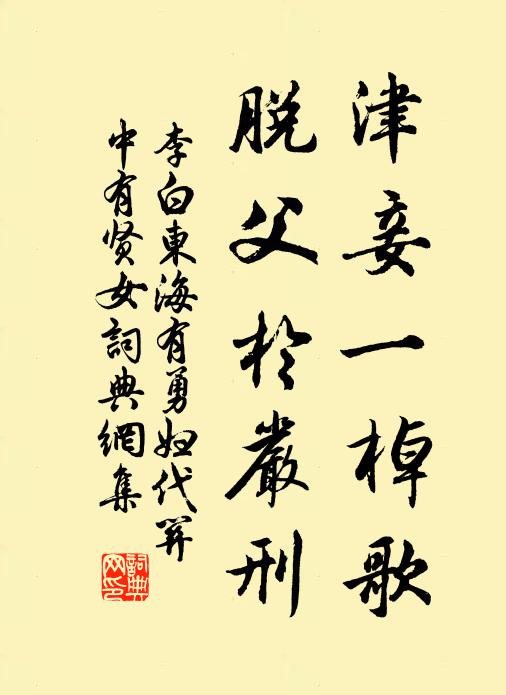 津妾一棹歌
脱父於嚴刑
李白東海有勇妇代关
中有贤女詞典網集
詞典
网印